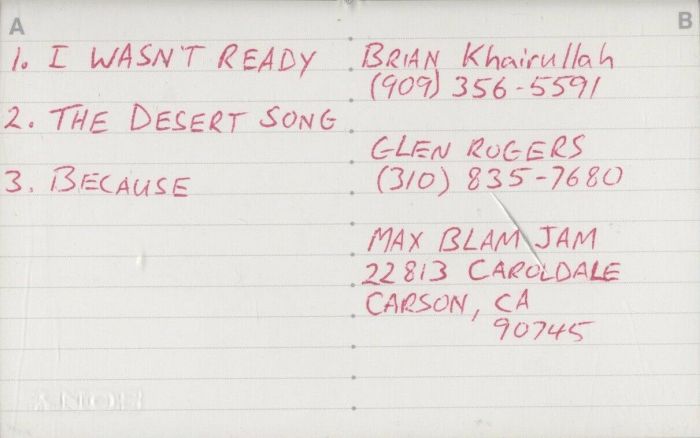 A
1. I WASN'T READY
2. THE DESERT SONG
3. BECAUSE
B
BRIAN Khairullah
(909) 356-5591
GLEN ROGERS
(310) 835-7680
MAX BLAM JAM
22813 CAROLDALE
CARSON, CA
90745
SONY